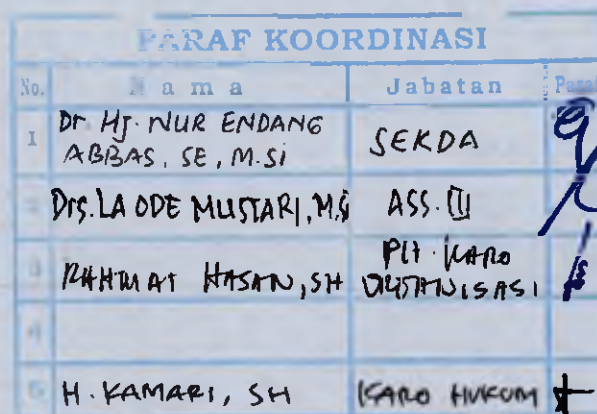 PARAF KOORDINASI
No. Nama Jabatan Paraf
1 Dr. Hj. NUR ENDANG ABBAS, SE, M.Si SEKDA
2 Drs. LA ODE MUSTARI, M.Si ASS. III
3 RAHMAT HASAN, SH Plt. KARO ORGANISASI
4
5 H. KAMARI, SH KARO HUKUM